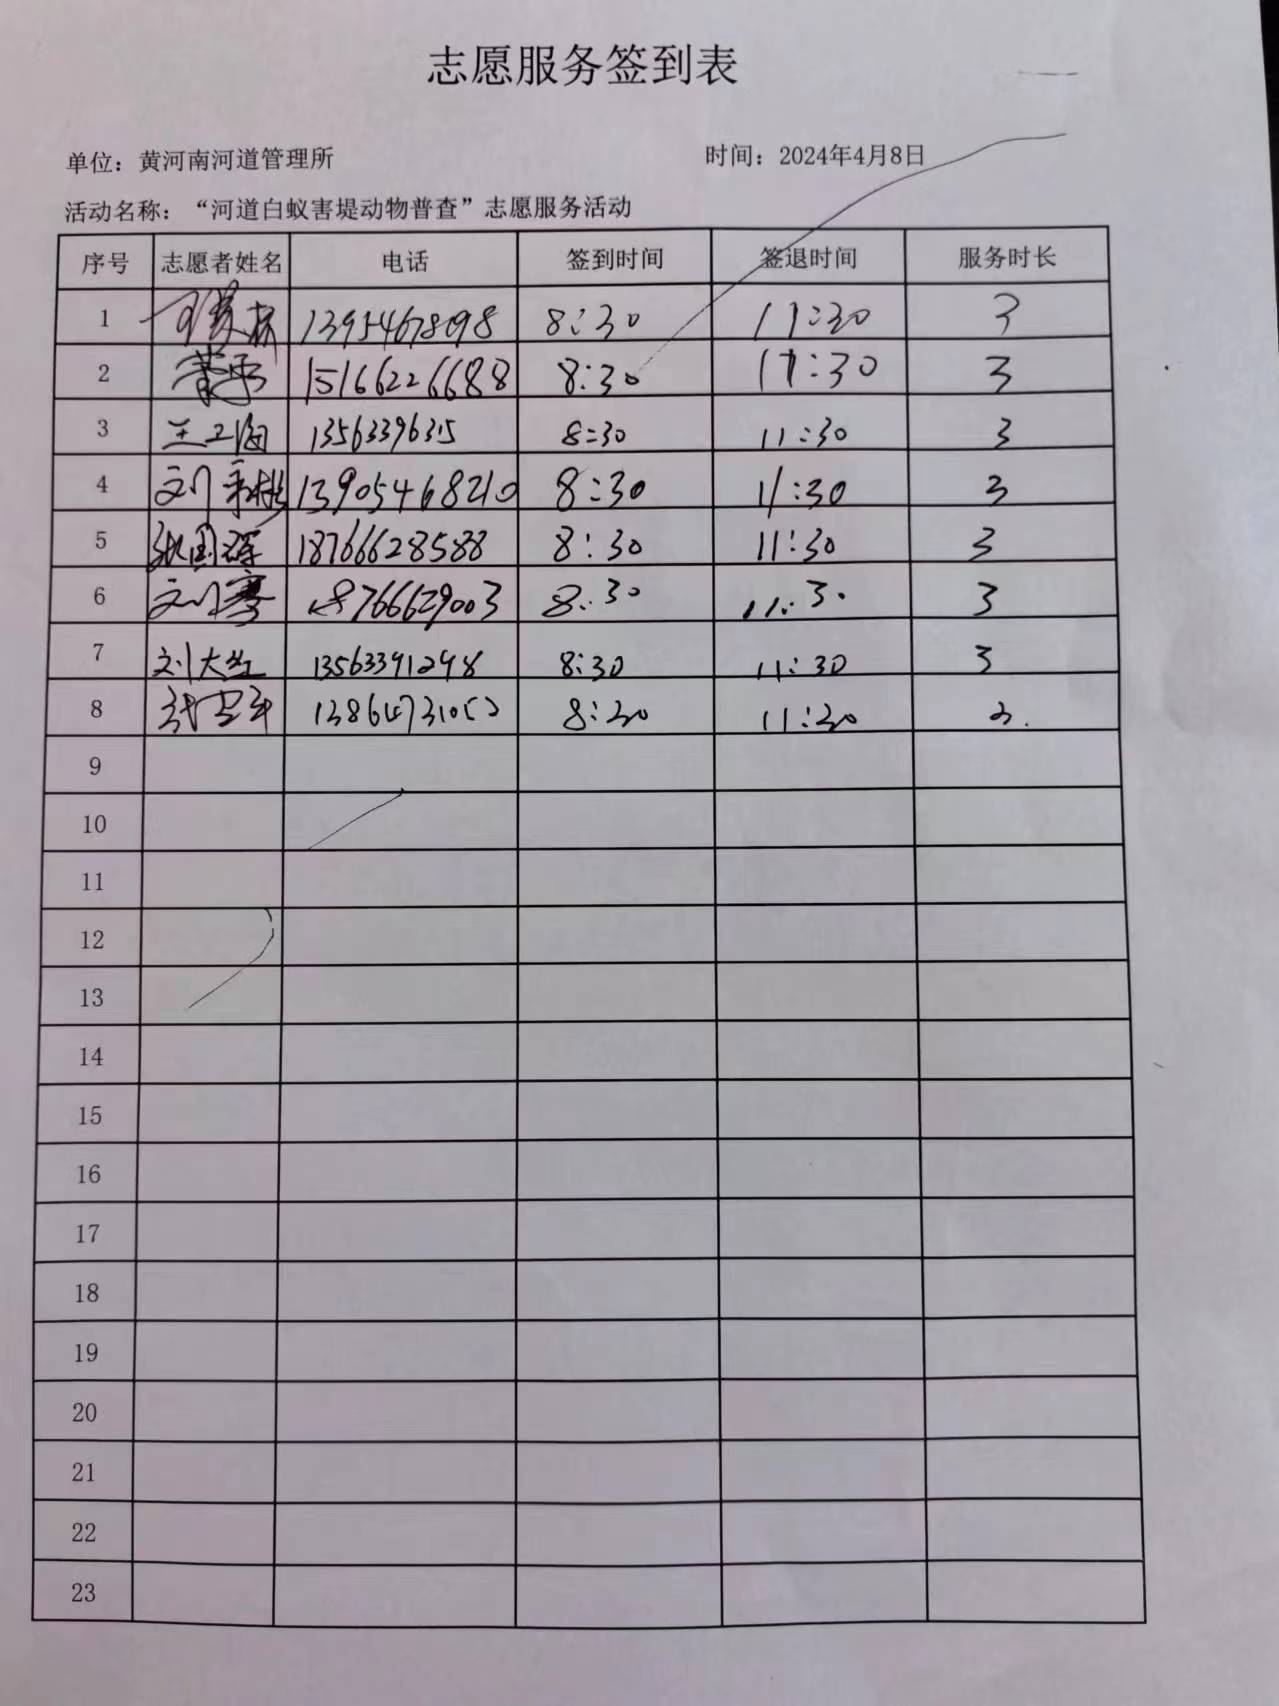 志愿服务签到表
单位：黄河南河道管理所 时间：2024年4月8日
活动名称：“河道白蚁害堤动物普查”志愿服务活动
序号 志愿者姓名 电话 签到时间 签退时间 服务时长
1 13954678098 8:30 11:30 3
2 15166226688 8:30 11:30 3
3 王卫海 13563396315 8:30 11:30 3
4 13905468210 8:30 11:30 3
5 张国辉 18766628588 8:30 11:30 3
6 刘骞 18766629003 8:30 11:30 3
7 刘大 13563391298 8:30 11:30 3
8 8:30 11:30 3.
9
10
11
12
13
14
15
16
17
18
19
20
21
22
23